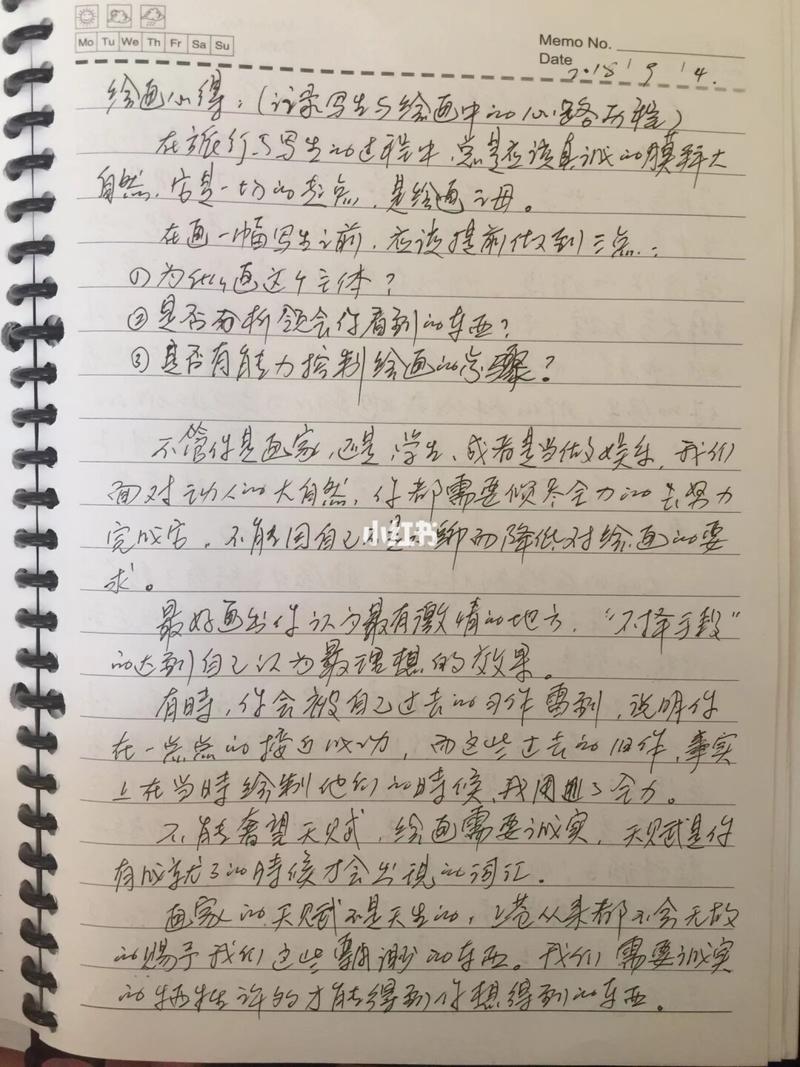 Mo Tu We Th Fr Sa Su
Memo No.
Date 2018 9 4.
绘画心得：（记录写生与绘画中的心路历程）
在旅行与写生的过程中，总是应该真诚的膜拜大
自然，它是一切的起点，是绘画之母。
在画一幅写生之前，应该提前做到三点：
①为什么画这个主体？
②是否分析领会你看到的东西？
③是否有能力控制绘画的步骤？
不管你是画家，还是学生，或者是当做娱乐，我们
面对动人的大自然，你都需要倾尽全力的去努力
完成它，不能因自己而降低对绘画的要
求。
小红书
最好画出你认为最有激情的地方，“不择手段”
的达到自己认为最理想的效果。
有時，你会被自己过去的习作震到，说明你
在一点点的接近成功，而这些过去的旧作，事实
上在当時绘制他们的時候，我用了全力。
不能奢望天赋，绘画需要诚实，天赋是你
有成就了的時候才会出现的词汇。
画家的天赋不是天生的，上苍从来都不会无故
的赐予我们这些的东西。我们需要诚实
的牺牲许多才能得到你想得到的东西。